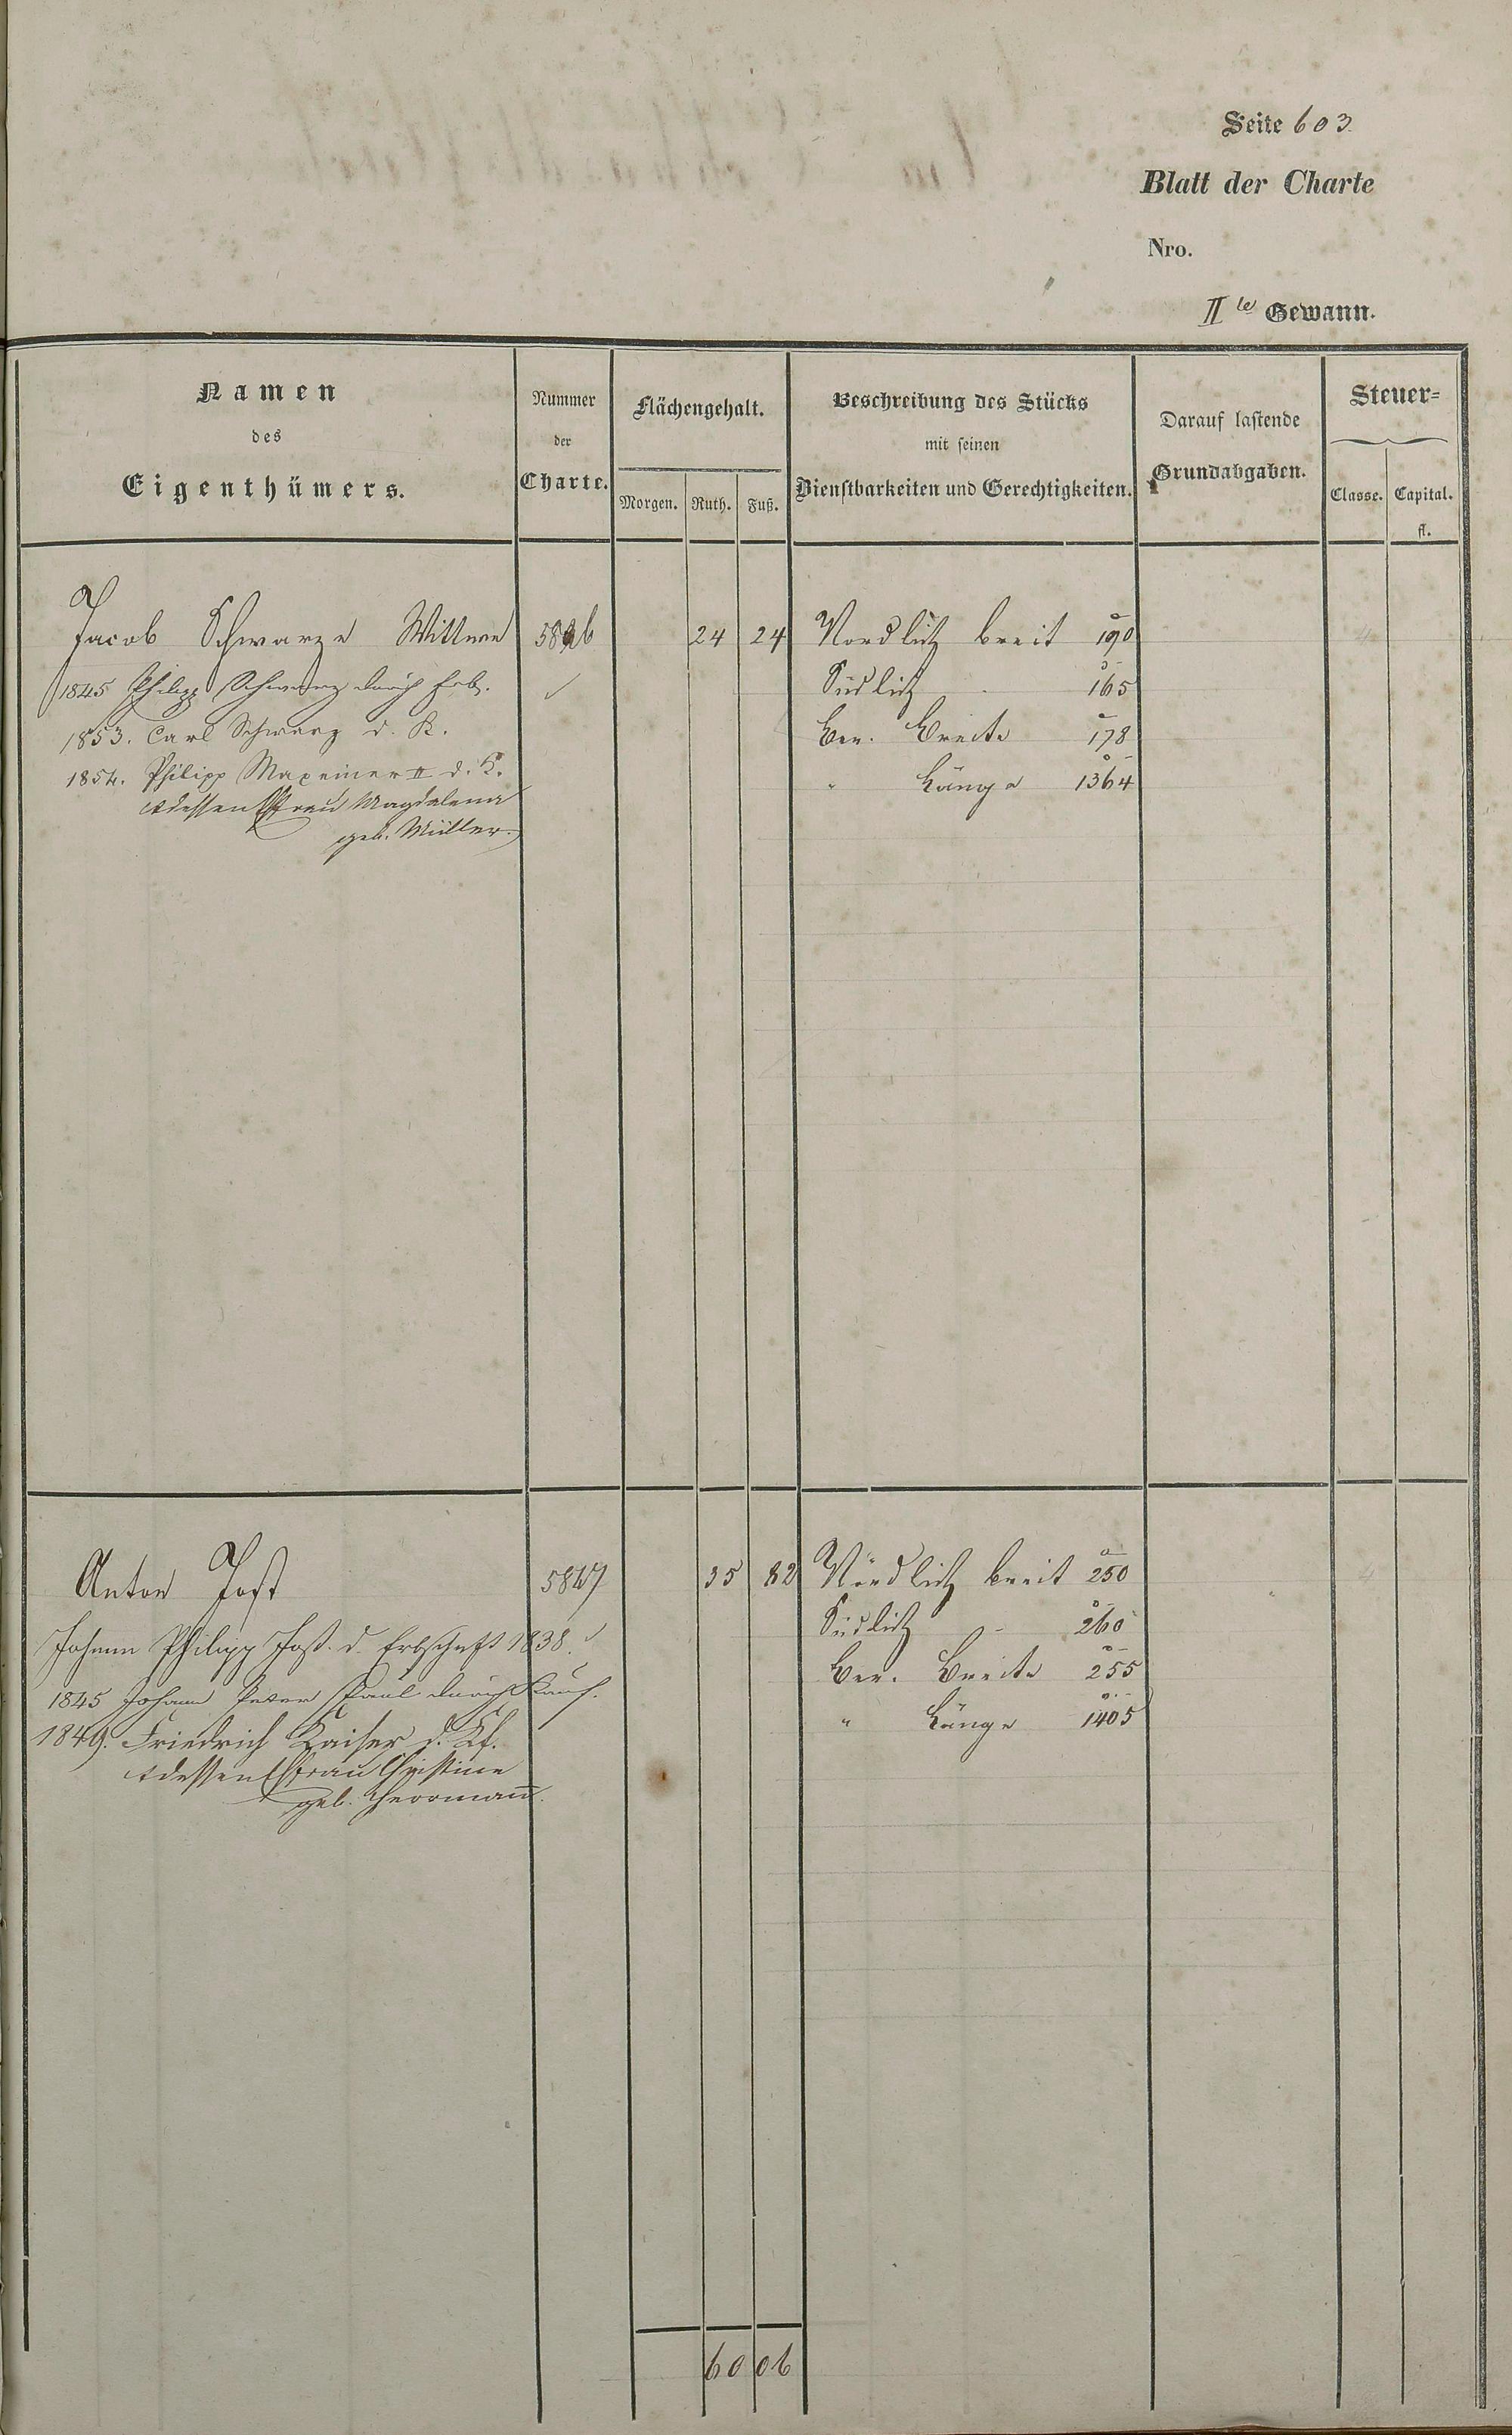 Seite 603
Blatt der Charte
Nro.
II te Gewann.
Namen
des
Eigenthümers.
Nummer
der
Charte.
Flächengehalt.
Morgen. Ruth. Fuß.
Beschreibung des Stücks
mit seinen
Dienstbarkeiten und Gerechtigkeiten.
Darauf lastende
Grundabgaben.
Steuer-
Classe. Capital.
fl.
Jacob Schwarz Wittwe 24 24 Nördlich breit 190
1845 Philipp Schwarz durch Erb. Südlich - 165
1853. Carl Schwarz d. K. Ber. Breite 178
1854. Philipp Maxeiner II d. K. " Länge 1364
& dessen Ehfrau Magdalena
geb. Müller.
Anton Jost 5847 35 82 Nördlich breit 250
Johann Philipp Jost d. Erbschaft 1838. Südlich - 260
1845 Johann Peter Paul durch Kauf. Ber. Breite 255
1849. Friedrich Kaiser d. Kf. " Länge 1405
& dessen Ehfrau Christine
geb. Herrmann.
60 06